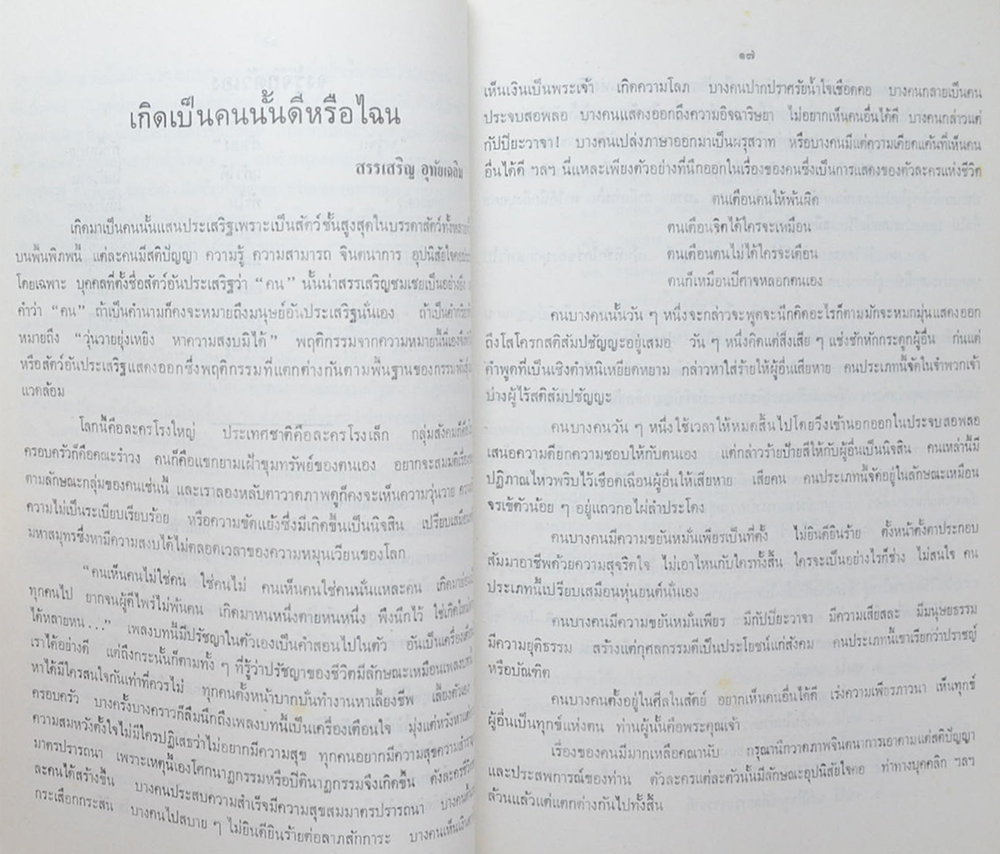 เกิดเป็นคนนั้นดีหรือไฉน
สรรเสริญ อุทัยเฉลิม
เกิดมาเป็นคนนั้นแสนประเสริฐเพราะเป็นสัตว์ชั้นสูงสุดในบรรดาสัตว์ทั้งหลาย
บนพื้นพิภพนี้ แต่ละคนมีสติปัญญา ความรู้ ความสามารถ จินตนาการ อุปนิสัยใจคอ
โดยเฉพาะ บุคคลที่ตั้งชื่อสัตว์อันประเสริฐว่า “คน” นั้นน่าสรรเสริญชมเชยเป็นอย่างยิ่ง
คำว่า “คน” ถ้าเป็นคำนามก็คงจะหมายถึงมนุษย์อันประเสริฐนั่นเอง ถ้าเป็นคำกริยา
หมายถึง “วุ่นวายยุ่งเหยิง หาความสงบมิได้” พฤติกรรมจากความหมายนี้นี่เองจึง
หรือสัตว์อันประเสริฐแสดงออกซึ่งพฤติกรรมที่แตกต่างกันตามพื้นฐานของกรรมพันธุ์
แวดล้อม
โลกนี้คือละครโรงใหญ่ ประเทศชาติคือละครโรงเล็ก กลุ่มสังคมก็คือ
ครอบครัวก็คือคณะรำวง คนก็คือแขกยามเฝ้าขุมทรัพย์ของตนเอง อยากจะสมมติ
ตามลักษณะกลุ่มของคนเช่นนี้ และเราลองหลับตาวาดภาพดูก็คงจะเห็นความวุ่นวาย
ความไม่เป็นระเบียบเรียบร้อย หรือความขัดแย้งซึ่งมีเกิดขึ้นเป็นนิจสิน เปรียบเสมือน
มหาสมุทรซึ่งหามีความสงบได้ไม่ตลอดเวลาของความหมุนเวียนของโลก
“คนเห็นคนไม่ใช่คน ใช่คนไม่ คนเห็นคนใช่คนนั่นแหละคน เกิดมา
ทุกคนไป ยากจนผู้ดีไพร่ไม่พ้นคน เกิดมาหนหนึ่งตายหนหนึ่ง พึงนึกไว้ ใช่เกิด
ได้หลายหน...” เพลงบทนี้มีปรัชญาในตัวเองเป็นคำสอนไปในตัว อันเป็นเครื่อง
เราได้อย่างดี แต่ถึงกระนั้นก็ตามทั้ง ๆ ที่รู้ว่าปรัชญาของชีวิตมีลักษณะเหมือนเพลง
หาได้มีใครสนใจกันเท่าที่ควรไม่ ทุกคนตั้งหน้าบากบั่นทำงานหาเลี้ยงชีพ เลี้ยงตัวเอง
ครอบครัว บางครั้งบางคราวก็ลืมนึกถึงเพลงบทนี้เป็นเครื่องเตือนใจ มุ่งแต่หวัง
ความสมหวังตั้งใจไม่มีใครปฏิเสธว่าไม่อยากมีความสุข ทุกคนอยากมีความสุขความสำเร็จ
มาตรปรารถนา เพราะเหตุนี้เองโศกนาฏกรรมหรือปีตินาฏกรรมจึงเกิดขึ้น ดังละครชีวิต
ละคนได้สร้างขึ้น บางคนประสบความสำเร็จมีความสุขสมมาตรปรารถนา บางคน
กระเสือกกระสน บางคนไปสบาย ๆ ไม่ยินดียินร้ายต่อลาภสักการะ บางคนเห็นเงิน
๑๗
เห็นเงินเป็นพระเจ้า เกิดความโลภ บางคนปากปราศรัยน้ำใจเชือดคอ บางคนกลายเป็นคน
ประจบสอพลอ บางคนแสดงออกถึงความอิจฉาริษยา ไม่อยากเห็นคนอื่นได้ดี บางคนกล่าวแต่
กัปปิยะวาจา! บางคนเปล่งภาษาออกมาเป็นผรุสวาท หรือบางคนมีแต่ความเคียดแค้นที่เห็นคน
อื่นได้ดี ฯลฯ นี่แหละเพียงตัวอย่างที่นึกออกในเรื่องของคนซึ่งเป็นการแสดงของตัวละครแห่งชีวิต
ตนเตือนตนให้พ้นผิด
ตนเตือนจิตได้ใครจะเหมือน
ตนเตือนตนไม่ได้ใครจะเตือน
ตนก็เหมือนปีศาจหลอกตนเอง
คนบางคนนั้นวัน ๆ หนึ่งจะกล่าวจะพูดจะนึกคิดอะไรก็ตามมักจะหมกมุ่นแสดงออก
ถึงโสโครกสติสัมปชัญญะอยู่เสมอ วัน ๆ หนึ่งคิดแต่สิ่งเสีย ๆ แช่งชักหักกระดูกผู้อื่น ก่นแต่
คำพูดที่เป็นเชิงตำหนิเหยียดหยาม กล่าวหาใส่ร้ายให้ผู้อื่นเสียหาย คนประเภทนี้จัดในจำพวกเจ้า
บ่างผู้ไร้สติสัมปชัญญะ
คนบางคนวัน ๆ หนึ่งใช้เวลาให้หมดสิ้นไปโดยวิ่งเข้านอกออกในประจบสอพลอ
เสนอความดียกความชอบให้กับตนเอง แต่กล่าวร้ายป้ายสีให้กับผู้อื่นเป็นนิจสิน คนเหล่านี้มี
ปฏิภาณไหวพริบไว้เชือดเฉือนผู้อื่นให้เสียหาย เสียคน คนประเภทนี้จัดอยู่ในลักษณะเหมือน
จรเข้ตัวน้อย ๆ อยู่แถวกอไผ่ลำประโดง
คนบางคนมีความขยันหมั่นเพียรเป็นที่ตั้ง ไม่ยินดียินร้าย ตั้งหน้าตั้งตาประกอบ
สัมมาอาชีพด้วยความสุจริตใจ ไม่เอาไหนกับใครทั้งสิ้น ใครจะเป็นอย่างไรก็ช่าง ไม่สนใจ คน
ประเภทนี้เปรียบเสมือนหุ่นยนต์นั่นเอง
คนบางคนมีความขยันหมั่นเพียร มีกัปปิยะวาจา มีความเสียสละ มีมนุษยธรรม
มีความยุติธรรม สร้างแต่กุศลกรรมดีเป็นประโยชน์แก่สังคม คนประเภทนี้เขาเรียกว่าปราชญ์
หรือบัณฑิต
คนบางคนตั้งอยู่ในศีลในสัตย์ อยากเห็นคนอื่นได้ดี เร่งความเพียรภาวนา เห็นทุกข์
ผู้อื่นเป็นทุกข์แห่งตน ท่านผู้นั้นคือพระคุณเจ้า
เรื่องของคนมีมากเหลือคณานับ กรุณานึกวาดภาพจินตนาการเอาตามแต่สติปัญญา
และประสพการณ์ของท่าน ตัวละครแต่ละตัวนั้นมีลักษณะอุปนิสัยใจคอ ท่าทางบุคคลิก ฯลฯ
ล้วนแล้วแต่แตกต่างกันไปทั้งสิ้น